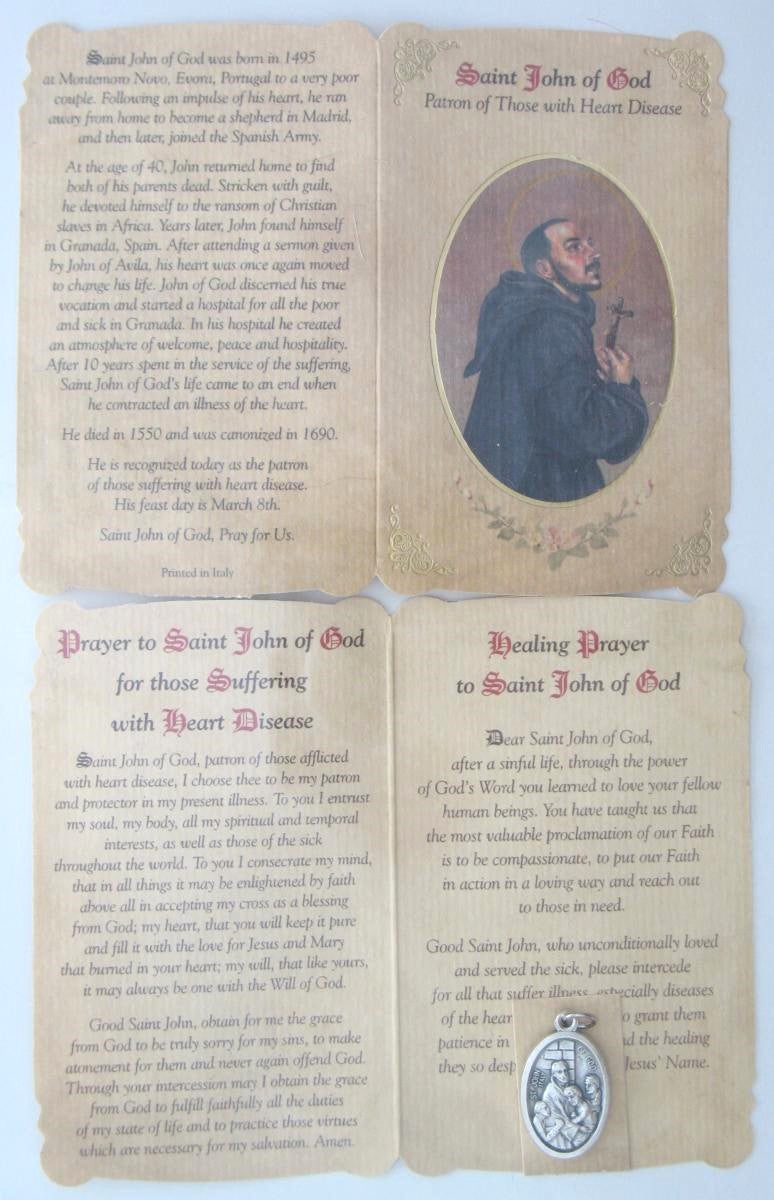 Saint John of God was born in 1495
at Montemoro Novo, Evora, Portugal to a very poor
couple. Following an impulse of his heart, he ran
away from home to become a shepherd in Madrid,
and then later, joined the Spanish Army.
At the age of 40, John returned home to find
both of his parents dead. Stricken with guilt,
he devoted himself to the ransom of Christian
slaves in Africa. Years later, John found himself
in Granada, Spain. After attending a sermon given
by John of Avila, his heart was once again moved
to change his life. John of God discerned his true
vocation and started a hospital for all the poor
and sick in Granada. In his hospital he created
an atmosphere of welcome, peace and hospitality.
After 10 years spent in the service of the suffering,
Saint John of God's life came to an end when
he contracted an illness of the heart.
He died in 1550 and was canonized in 1690.
He is recognized today as the patron
of those suffering with heart disease.
His feast day is March 8th.
Saint John of God, Pray for Us.
Printed in Italy
Saint John of God
Patron of Those with Heart Disease
Prayer to Saint John of God
for those Suffering
with Heart Disease
Saint John of God, patron of those afflicted
with heart disease, I choose thee to be my patron
and protector in my present illness. To you I entrust
my soul, my body, all my spiritual and temporal
interests, as well as those of the sick
throughout the world. To you I consecrate my mind,
that in all things it may be enlightened by faith
above all in accepting my cross as a blessing
from God; my heart, that you will keep it pure
and fill it with the love for Jesus and Mary
that burned in your heart; my will, that like yours,
it may always be one with the Will of God.
Good Saint John, obtain for me the grace
from God to be truly sorry for my sins, to make
atonement for them and never again offend God.
Through your intercession may I obtain the grace
from God to fulfill faithfully all the duties
of my state of life and to practice those virtues
which are necessary for my salvation. Amen.
Healing Prayer
to Saint John of God
Dear Saint John of God,
after a sinful life, through the power
of God's Word you learned to love your fellow
human beings. You have taught us that
the most valuable proclamation of our Faith
is to be compassionate, to put our Faith
in action in a loving way and reach out
to those in need.
Good Saint John, who unconditionally loved
and served the sick, please intercede
for all that suffer illness, especially diseases
of the hear o grant them
patience in nd the healing
they so desp Jesus' Name.
ST. JOHN OF GOD